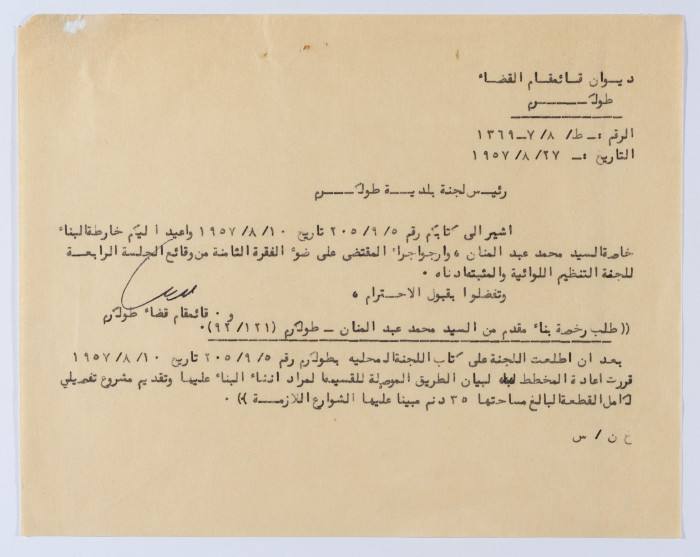 ديوان قائمقام القضاء
طولكرم
الرقم :ـ ط/ ٧/٨ـ ١٣٦٩
التاريخ :ـ ١٩٥٧/٨/٢٧
رئيس لجنة بلدية طولكرم
اشير الى كتابكم رقم ٢٠٥/٩/٥ تاريخ ١٩٥٧/٨/١٠ واعيد اليكم خارطة البناء
خاصة السيد محمد عبد المنان ، وارجو اجراء المقتضى على ضوء الفقرة الثامنة من وقائع الجلسة الرابعة
للجنة التنظيم اللوائية والمثبته ادناه ٠
وتفضلوا بقبول الاحترام ،
و ٠ قائمقام قضاء طولكرم
(( طلب رخصة بناء مقدم من السيد محمد عبد المنان ـ طولكرم (٩٢/١٢١) ٠
بعد ان اطلعت اللجنة على كتاب اللجنة المحليه بطولكرم رقم ٢٠٥/٩/٥ تاريخ ١٩٥٧/٨/١٠
قررت اعادة المخطط لبيان الطريق الموصلة للقسيمة المراد انشاء البناء عليها وتقديم مشروع تفصيلي
لكامل القطعة البالغ مساحتها ٣٥ دنم مبينا عليها الشوارع اللازمة )) ٠
ح ن / س